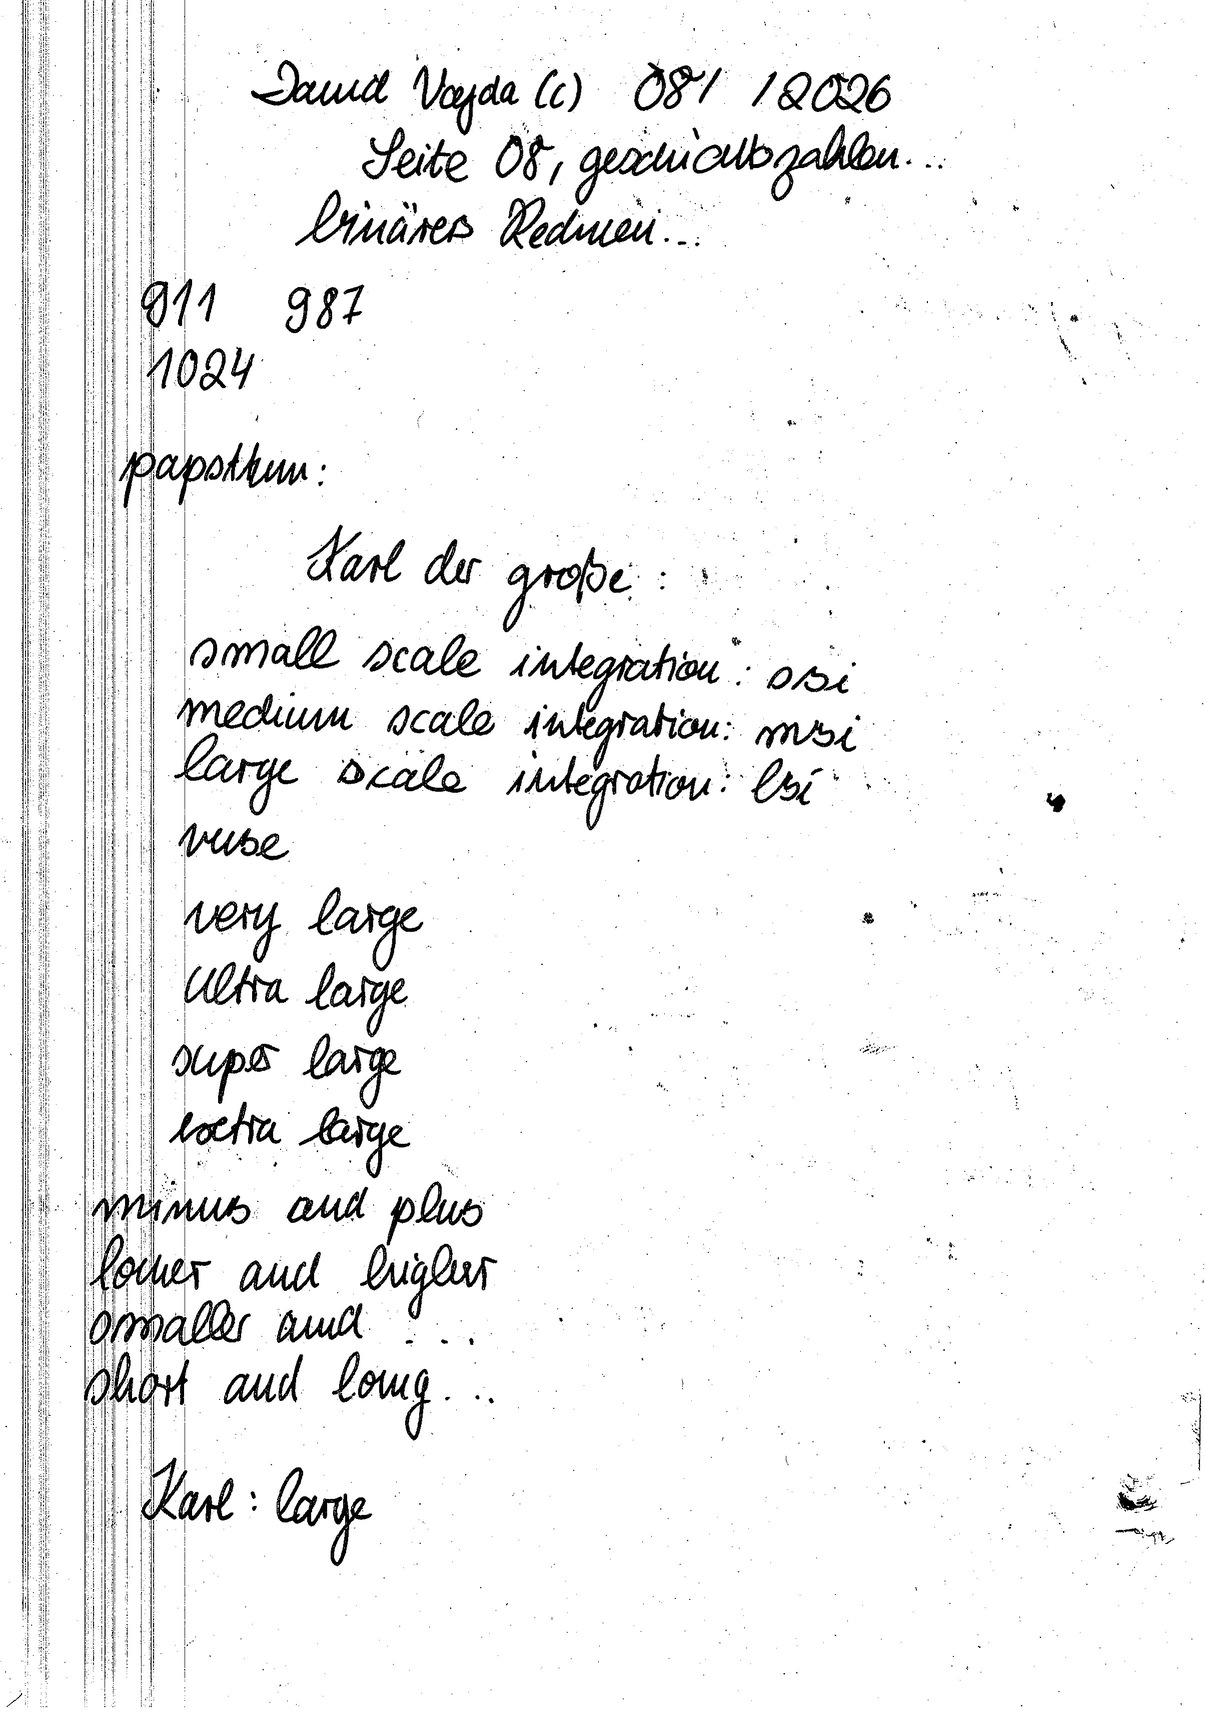 David Vajda (c) 08/ /2026
Seite 08, geschichtszahlen...
binäres Rechnen...
911 987
1024
papsttum:
Karl der große:
small scale integration: ssi
medium scale integration: msi
large scale integration: lsi
very large
Ultra large
super large
extra large
minus and plus
lower and higher
smaller and ...
short and long...
Karl: large